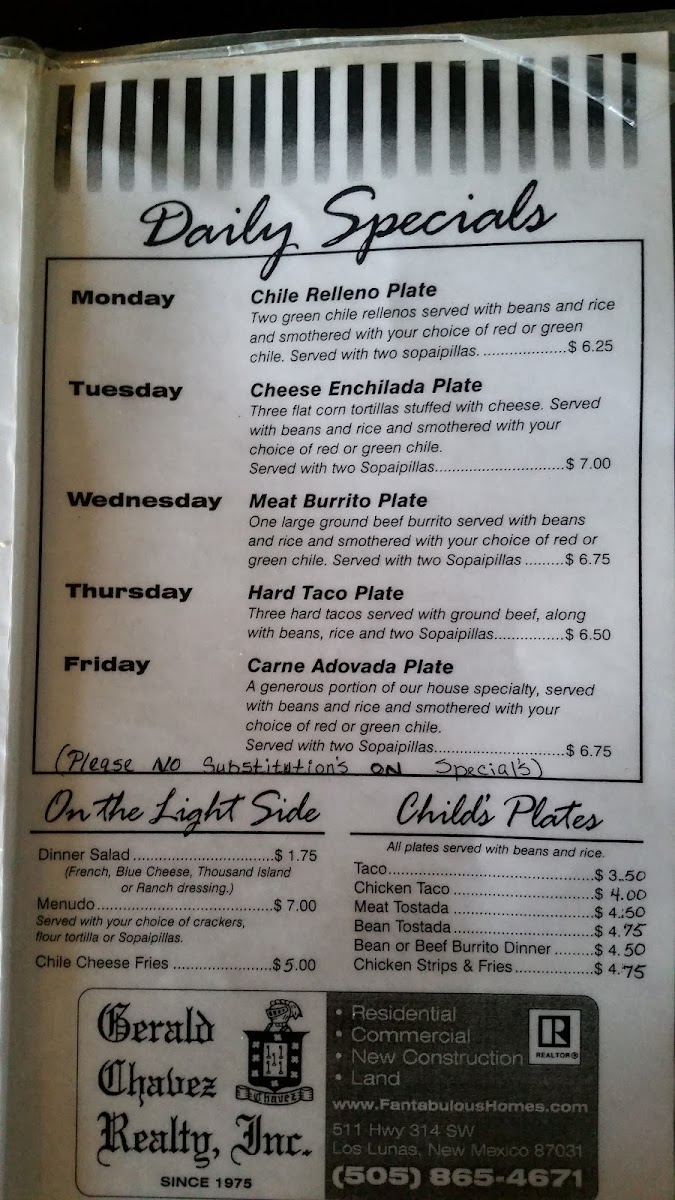 Daily Specials
Monday
Chile Relleno Plate
Two green chile rellenos served with beans and rice
and smothered with your choice of red or green
chile. Served with two sopaipillas. ....................$ 6.25
Tuesday
Cheese Enchilada Plate
Three flat corn tortillas stuffed with cheese. Served
with beans and rice and smothered with your
choice of red or green chile.
Served with two Sopaipillas...............................$ 7.00
Wednesday
Meat Burrito Plate
One large ground beef burrito served with beans
and rice and smothered with your choice of red or
green chile. Served with two Sopaipillas .........$ 6.75
Thursday
Hard Taco Plate
Three hard tacos served with ground beef, along
with beans, rice and two Sopaipillas.................$ 6.50
Friday
Carne Adovada Plate
A generous portion of our house specialty, served
with beans and rice and smothered with your
choice of red or green chile.
Served with two Sopaipillas...............................$ 6.75
(Please NO Substitution's ON Special's)
On the Light Side
Dinner Salad ..................................$ 1.75
(French, Blue Cheese, Thousand Island
or Ranch dressing.)
Menudo...........................................$ 7.00
Served with your choice of crackers,
flour tortilla or Sopaipillas.
Chile Cheese Fries ........................$5.00
Child's Plates
All plates served with beans and rice.
Taco..................................................$ 3.50
Chicken Taco ..................................$ 4.00
Meat Tostada ..................................$ 4.50
Bean Tostada..................................$ 4.75
Bean or Beef Burrito Dinner .........$ 4.50
Chicken Strips & Fries...................$ 4.75
Gerald
Chavez
Realty, Inc.
SINCE 1975
CHAVEZ
• Residential
• Commercial
• New Construction
• Land
R
REALTOR®
www.FantabulousHomes.com
511 Hwy 314 SW
Los Lunas, New Mexico 87031
(505) 865-4671